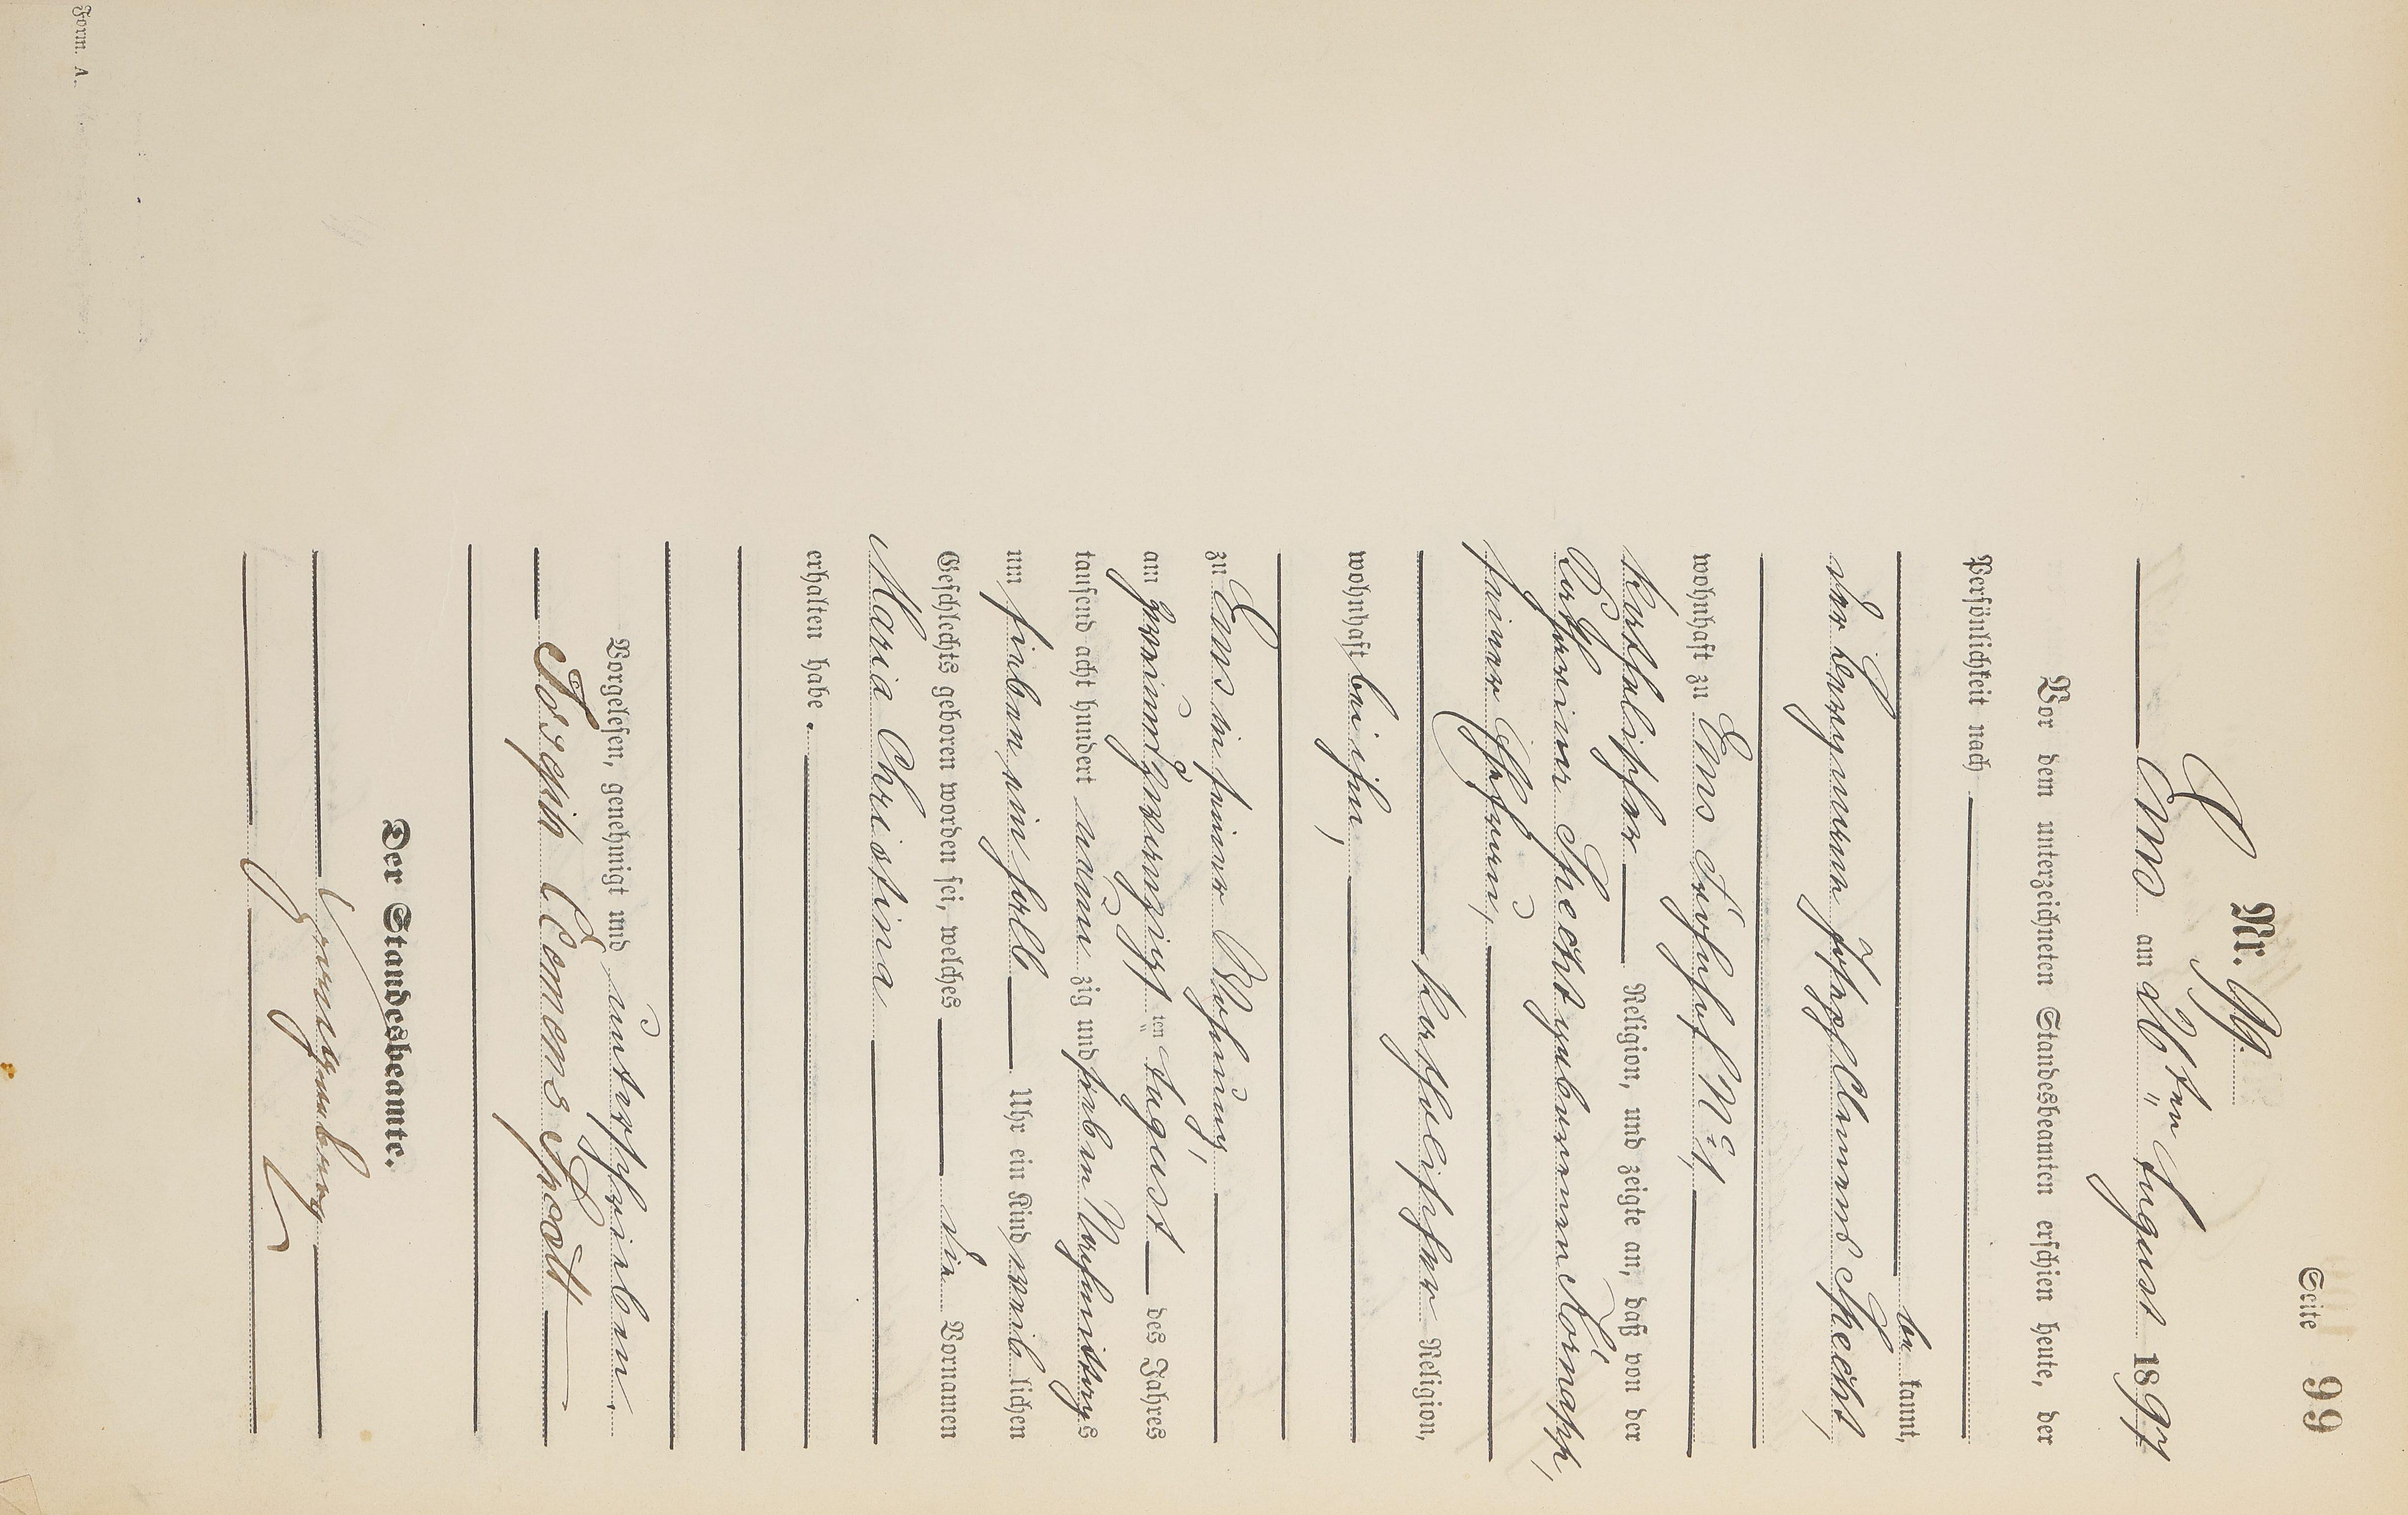 Seite 99
Nr. 99.
Ems am 26ten August 1897
Vor dem unterzeichneten Standesbeamten erschien heute, der
Persönlichkeit nach
be kannt,
der Bergmann Joseph Clemens Specht,
wohnhaft zu Ems Friedhof No 1,
katholischer Religion, und zeigte an, daß von der
Katharina Specht geborenen Kornapp,
seiner Ehefrau,
katholischer Religion,
wohnhaft bei ihm,
zu Ems in seiner Wohnung,
am zweiundzwanzigsten August des Jahres
tausend acht hundert neun zig und sieben Vormittags
um sieben ein halb Uhr ein Kind weib lichen
Geschlechts geboren worden sei, welches die Vornamen
Maria Christina
erhalten habe.
Vorgelesen, genehmigt und unterschrieben.
Joseph Clemens Specht
Der Standesbeamte.
Form. A.